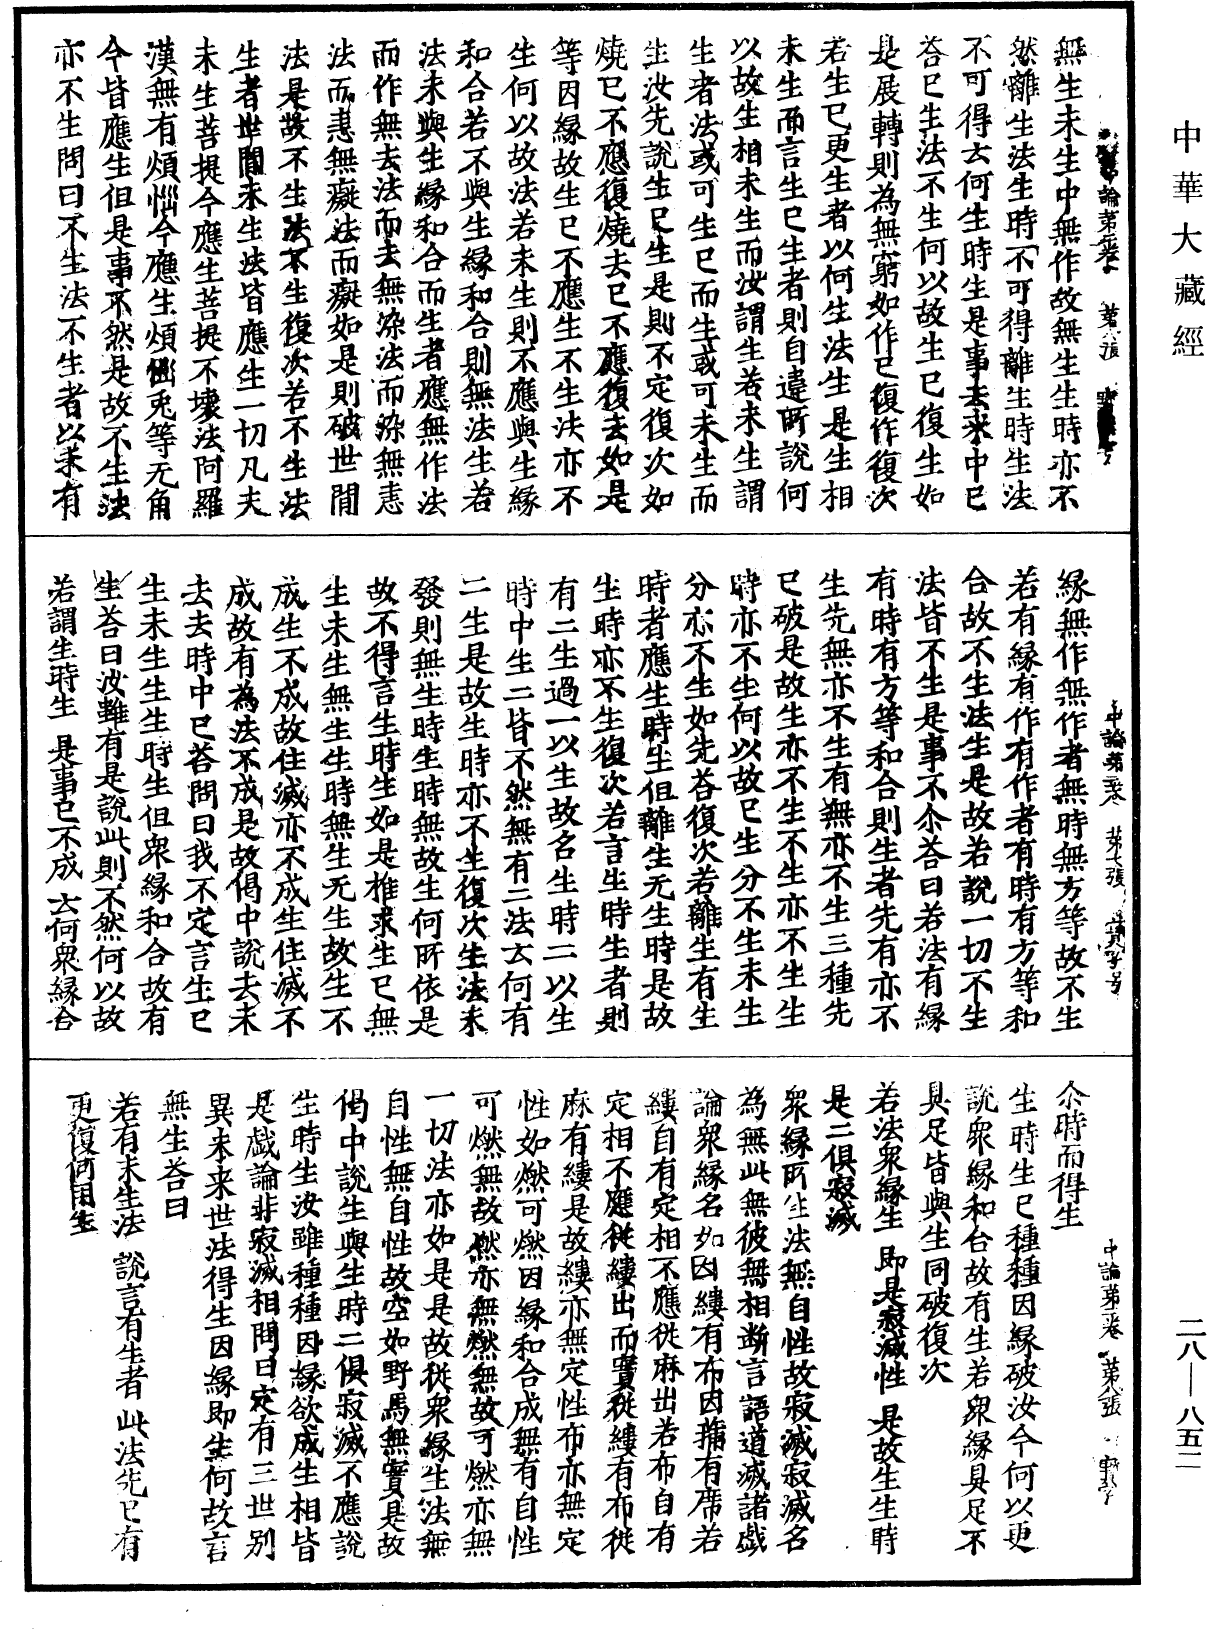 中華大藏經
無生未生中無作故無生生時亦不
然離生法生時不可得離生時生法
不可得云何生時生是事去來中已
荅已生法不生何以故生已復生如
是展轉則為無窮如作已復作復次
若生已更生者以何生法生是生相
未生而言生已生者則自違所說何
以故生相未生而汝謂生若未生謂
生者法或可生已而生或可未生而
生汝先說生已生是則不定復次如
燒已不應復燒去已不應復去如是
等因緣故生已不應生不生法亦不
生何以故法若未生則不應與生緣
和合若不與生緣和合則無法生若
法未與生緣和合而生者應無作法
而作無去法而去無染法而染無恚
法而恚無癡法而癡如是則破世間
法是故不生法不生復次若不生法
生者世間未生法皆應生一切凡夫
未生菩提今應生菩提不壞法阿羅
漢無有煩惱今應生煩惱兎等无角
今皆應生但是事不然是故不生法
亦不生問曰不生法不生者以未有
中論第二卷 第七張
緣無作無作者無時無方等故不生
若有緣有作有作者有時有方等和
合故不生法生是故若說一切不生
法皆不生是事不尒荅曰若法有緣
有時有方等和合則生者先有亦不
生先無亦不生有無亦不生三種先
已破是故生亦不生不生亦不生生
時亦不生何以故已生分不生未生
分亦不生如先荅復次若離生有生
時者應生時生但離生无生時是故
生時亦不生復次若言生時生者則
有二生過一以生故名生時二以生
時中生二皆不然無有二法云何有
二生是故生時亦不生復次生法未
發則無生時生時無故生何所依是
故不得言生時生如是推求生已無
生未生無生生時無生无生故生不
成生不成故住滅亦不成生住滅不
成故有為法不成是故偈中說去未
去去時中已荅問曰我不定言生已
生未生生生時生但衆緣和合故有
生荅曰汝雖有是說此則不然何以故
若謂生時生 是事已不成 云何衆緣合
中論第二卷 第八張
尒時而得生
生時生已種種因緣破汝今何以更
說衆緣和合故有生若衆緣具足不
具足皆與生同破復次
若法衆緣生 即是寂滅性 是故生生時
是二俱寂滅
衆緣所生法無自性故寂滅寂滅名
為無此無彼無相斷言語道滅諸戲
論衆緣名如因縷有布因蒲有席若
縷自有定相不應從麻出若布自有
定相不應從縷出而實從縷有布從
麻有縷是故縷亦無定性布亦無定
性如燃可燃因緣和合成無有自性
可燃無故燃亦無燃無故可燃亦無
一切法亦如是是故從衆緣生法無
自性無自性故空如野馬無實是故
偈中說生與生時二俱寂滅不應說
生時生汝雖種種因緣欲成生相皆
是戲論非寂滅相問曰定有三世別
異未来世法得生因緣即生何故言
無生荅曰
若有未生法 說言有生者 此法先已有
更復何用生
二八—八五二